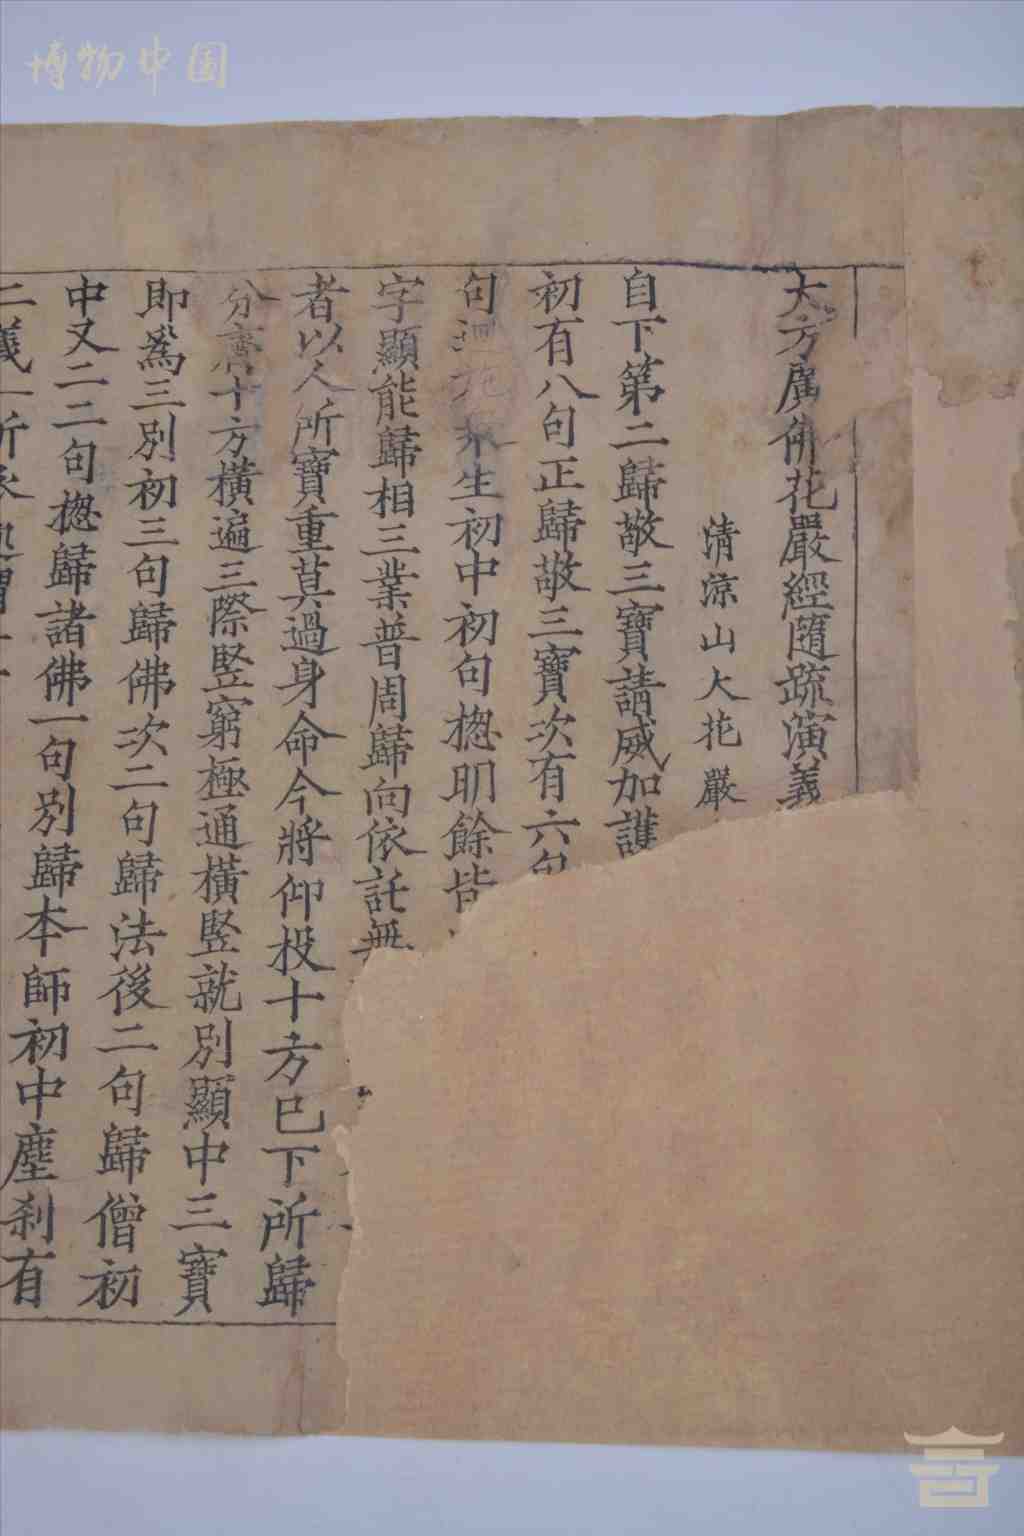 博物中国
大方廣佛花嚴經隨疏演義
清涼山大花嚴
自下第二歸敬三寶請威加護
初有八句正歸敬三寶次有六句
句迴施衆生初中初句揔明餘皆
字顯能歸相三業普周歸向依託無
者以人所寶重莫過身命今將仰投十方已下所歸
分齊十方橫遍三際竪窮極通橫竪就別顯中三寶
即爲三別初三句歸佛次二句歸法後二句歸僧初
中又二二句揔歸諸佛一句別歸本師初中塵刹有
二義一所依